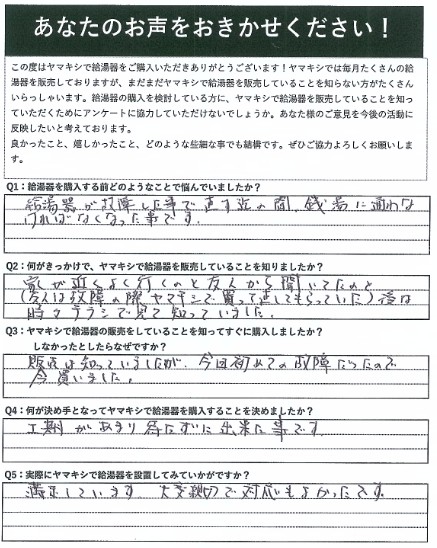 あなたのお声をおきかせください!
この度はヤマキシで給湯器をご購入いただきありがとうございます!ヤマキシでは毎月たくさんの給
湯器を販売しておりますが、まだまだヤマキシで給湯器を販売していることを知らない方がたくさん
いらっしゃいます。給湯器の購入を検討している方に、ヤマキシで給湯器を販売していることを知っ
ていただくためにアンケートに協力していただけないでしょうか。あなた様のご意見を今後の活動に
反映したいと考えております。
良かったこと、嬉しかったこと、どのような些細な事でも結構です。ぜひご協力よろしくお願いしま
す。
Q1:給湯器を購入する前どのようなことで悩んでいましたか?
給湯器が故障した事で直す迄の間、銭湯に通わな
ければなくなった事です。
Q2:何がきっかけで、ヤマキシで給湯器を販売していることを知りましたか?
家が近くよく行くのと友人から聞いてたのと
(友人は故障の際ヤマキシで買って直してもらっていた)後は
時々チラシで見て知っていました。
Q3:ヤマキシで給湯器の販売をしていることを知ってすぐに購入しましたか?
しなかったとしたらなぜですか?
販売は知っていましたが、今回初めての故障だったので
今買いました。
Q4:何が決め手となってヤマキシで給湯器を購入することを決めましたか?
工期があまり待たずに出来た事です。
Q5:実際にヤマキシで給湯器を設置してみていかがですか?
満足しています 大変親切で対応もよかったです。